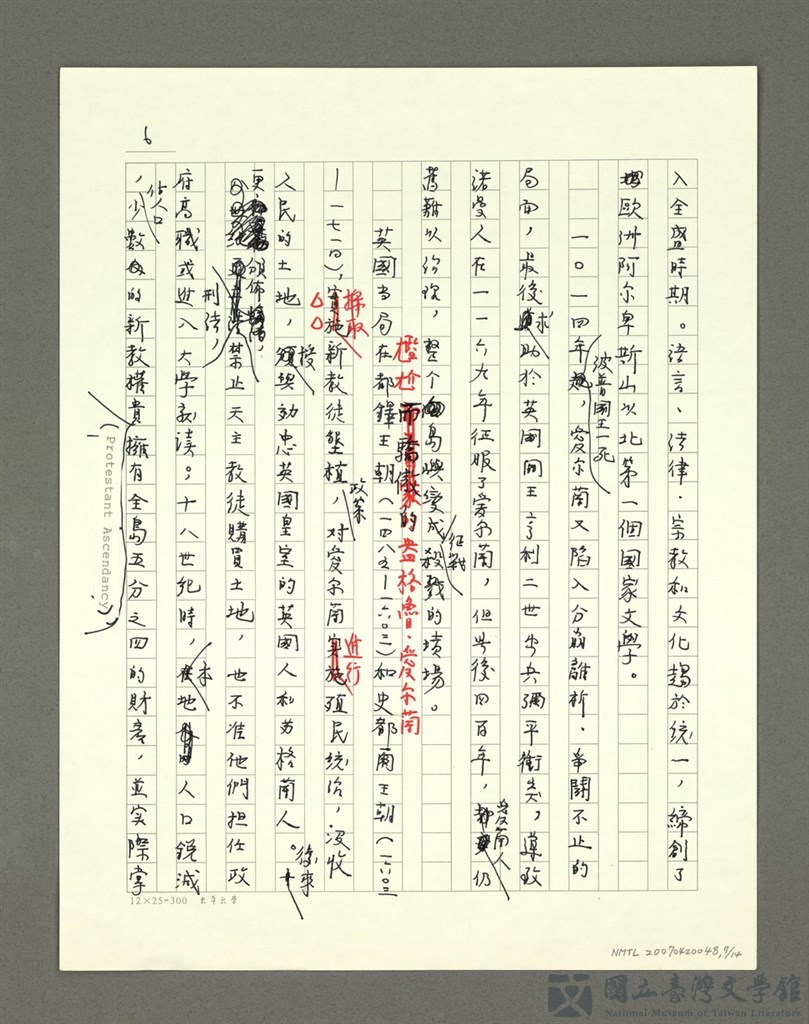 6
入全盛時期。語言、法律、宗教和文化趨於統一，締創了
歐洲阿尔卑斯山以北第一個國家文學。
一〇一四年波普國王一死，愛尔蘭又陷入分崩離析、爭鬪不止的
局面，最後求助於英國國王亨利二世出兵弭平衝突，導致
諾曼人在一一六九年征服了愛尔蘭，但其後四百年，愛蘭人仍
舊難以治理，整个島嶼變成征戰的墳場。
尷尬而驕傲的盎格魯・愛尔蘭
英國當局在都鐸王朝（一四八五-一六〇三）和史都爾王朝（一六〇三
-一七一四），採取新教徒墾植政策，对愛尔蘭進行殖民統治，沒收
人民的土地，授與効忠英國皇室的英國人和苏格蘭人。後來
更頒佈刑法，禁止天主教徒購買土地，也不准他們担任政
府高職或進入大學就讀。十八世紀時，本地人口銳減
，佔人口少數的新教權貴(Protestant Ascendancy)擁有全島五分之四的財產，並实際掌
12×25=300 東華大學
NMTL 20070420048, 7/14
國立臺灣文學館
National Museum of Taiwan Literature